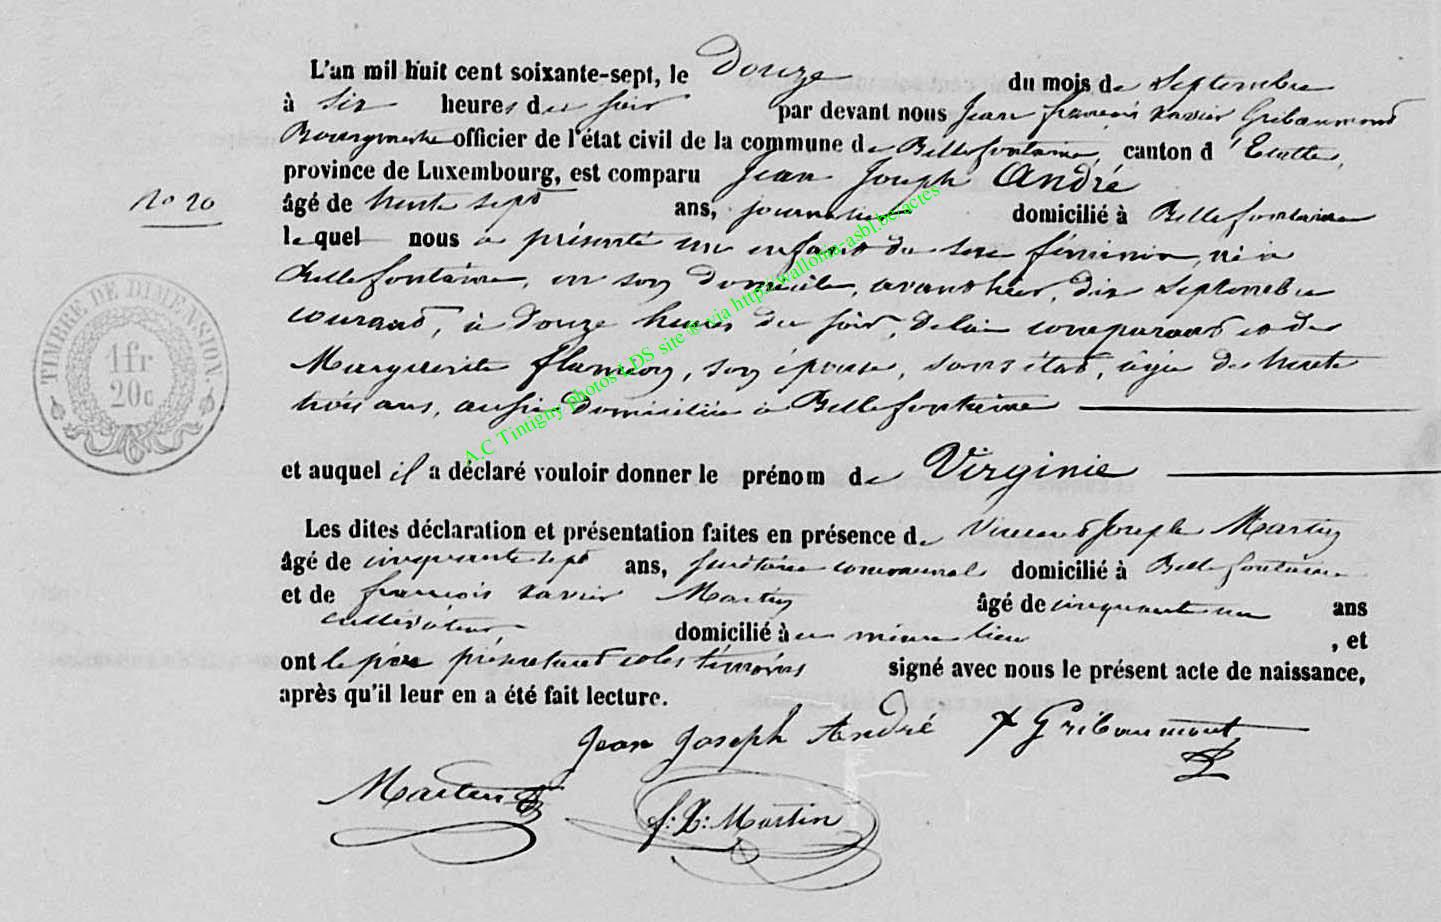 L'an mil huit cent soixante-sept, le Douze du mois de Septembre
à six heures du soir par devant nous Jean françois xavier Gribaumont
Bourgmestre officier de l'état civil de la commune de Bellefontaine, canton d'Etalle,
province de Luxembourg, est comparu Jean Joseph André
No 20
âgé de trente sept ans, journalier domicilié à Bellefontaine
lequel nous a présenté un enfant du sexe féminin, né à
Bellefontaine, en son domicile, avant hier, dix Septembre
courant, à Douze heures du soir, de lui comparant et de
Marguerite flamion, son épouse, sans état, âgée de trente
trois ans, aussi domiciliée à Bellefontaine
TIMBRE DE DIMENSION.
1fr
20c
et auquel il a déclaré vouloir donner le prénom de Virginie
Les dites déclaration et présentation faites en présence de Vincent Joseph Martin
âgé de cinquante sept ans, secrétaire communal domicilié à Bellefontaine
et de françois xavier Martin âgé de cinquante un ans
cultivateur, domicilié à au même lieu, et
ont le père présentant et les témoins signé avec nous le présent acte de naissance,
après qu'il leur en a été fait lecture.
Jean Joseph André Gribaumont
Martin f: X: Martin
A.C Tintigny photos LDS site @ via http://wallonia-asbl.be/actes